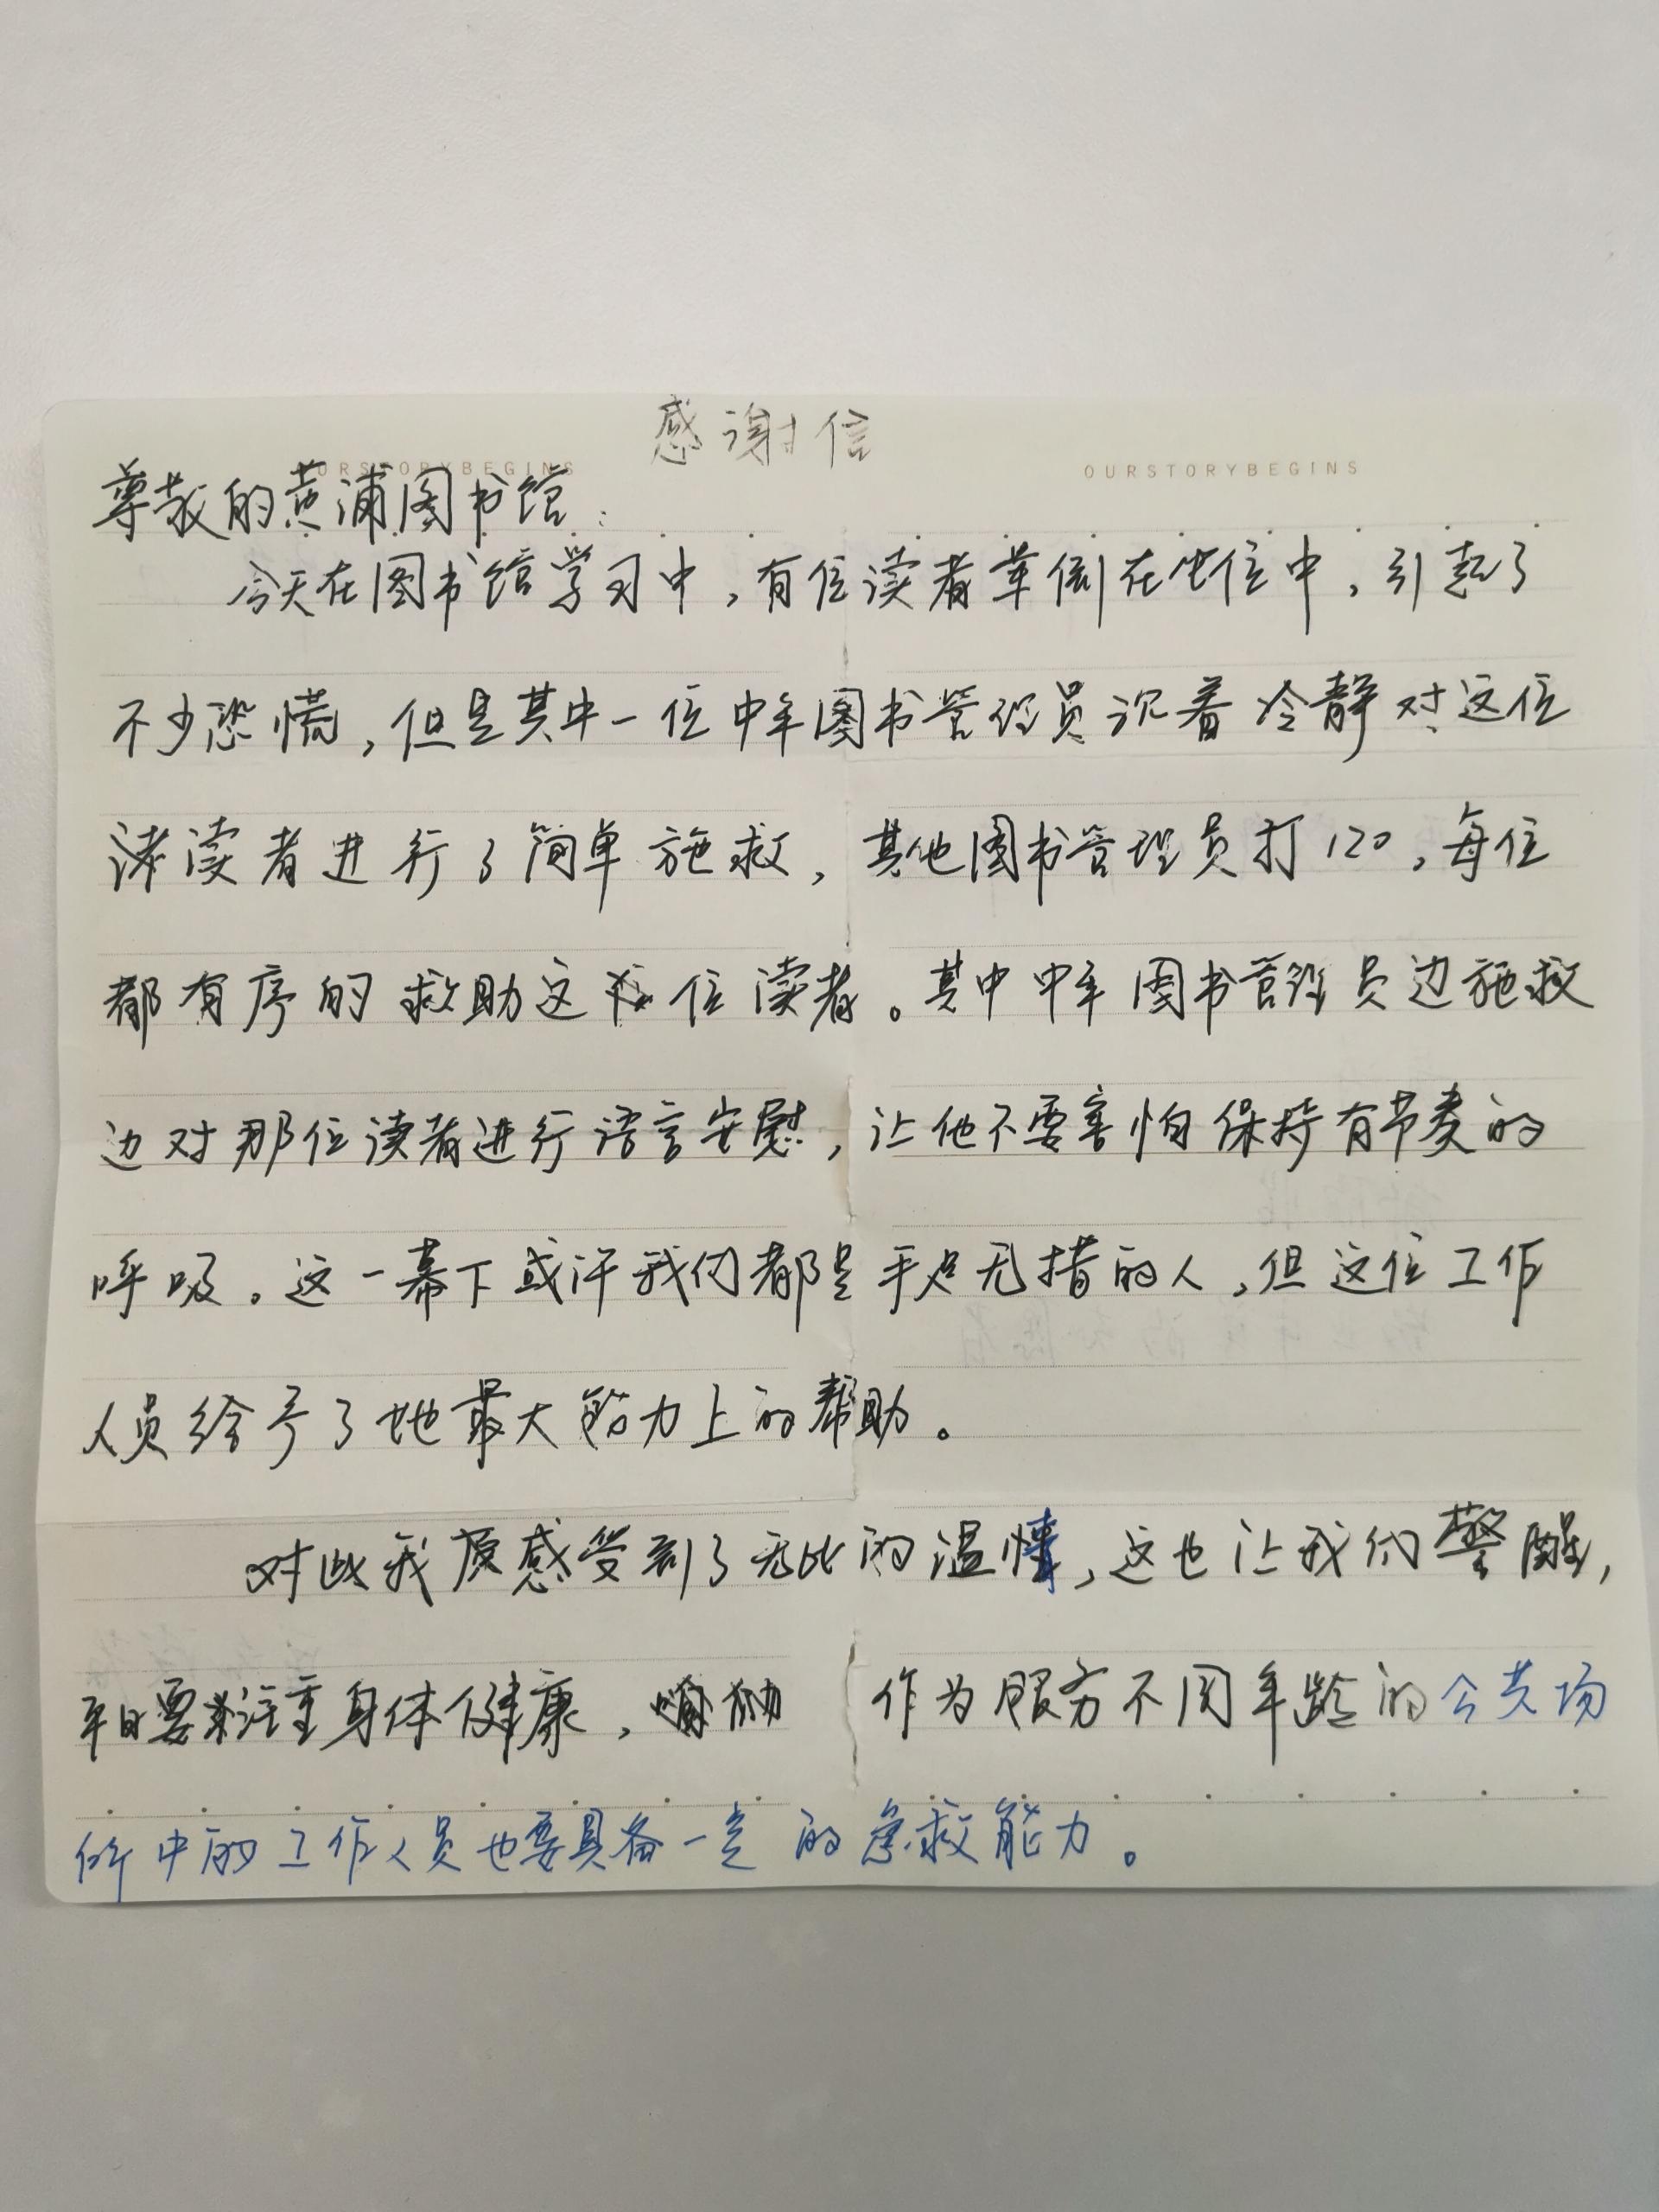 感谢信
OURSTORYBEGINS OURSTORYBEGINS
尊敬的黄浦图书馆：
今天在图书馆学习中，有位读者晕倒在坐位中，引起了
不少恐慌，但是其中一位中年图书管理员沉着冷静对这位
读者进行了简单施救，其他图书管理员打120，每位
都有序的救助这位读者。其中中年图书管理员边施救
边对那位读者进行语言安慰，让他不要害怕保持有节奏的
呼吸。这一幕下或许我们都是手足无措的人，但这位工作
人员给予了她最大能力上的帮助。
对此我感受到了无比的温情，这也让我们警醒，
平日要注重身体健康，作为服务不同年龄的公共场
所中的工作人员也要具备一定的急救能力。